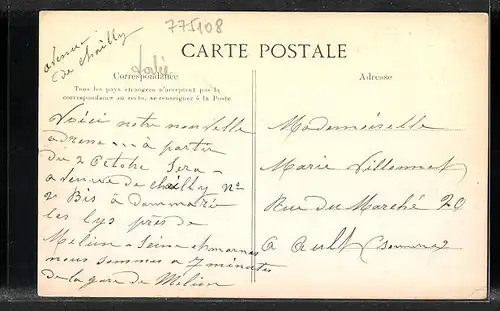 775108
avenue
de chailly
CARTE POSTALE
Correspondance
Adresse
Tous les pays étrangers n'acceptent pas la
correspondance au recto, se renseigner à la Poste
Voici notre nouvelle
adresse ... à partir
du 2 Octobre Sera
avenue de chailly No
2 Bis à dammarie
les lys près de
Melun - Seine et marne
nous sommes a 7 minutes
de la gare de Melun
Mademoiselle
Marie
Rue du Marché 20
a Ault (Somme)